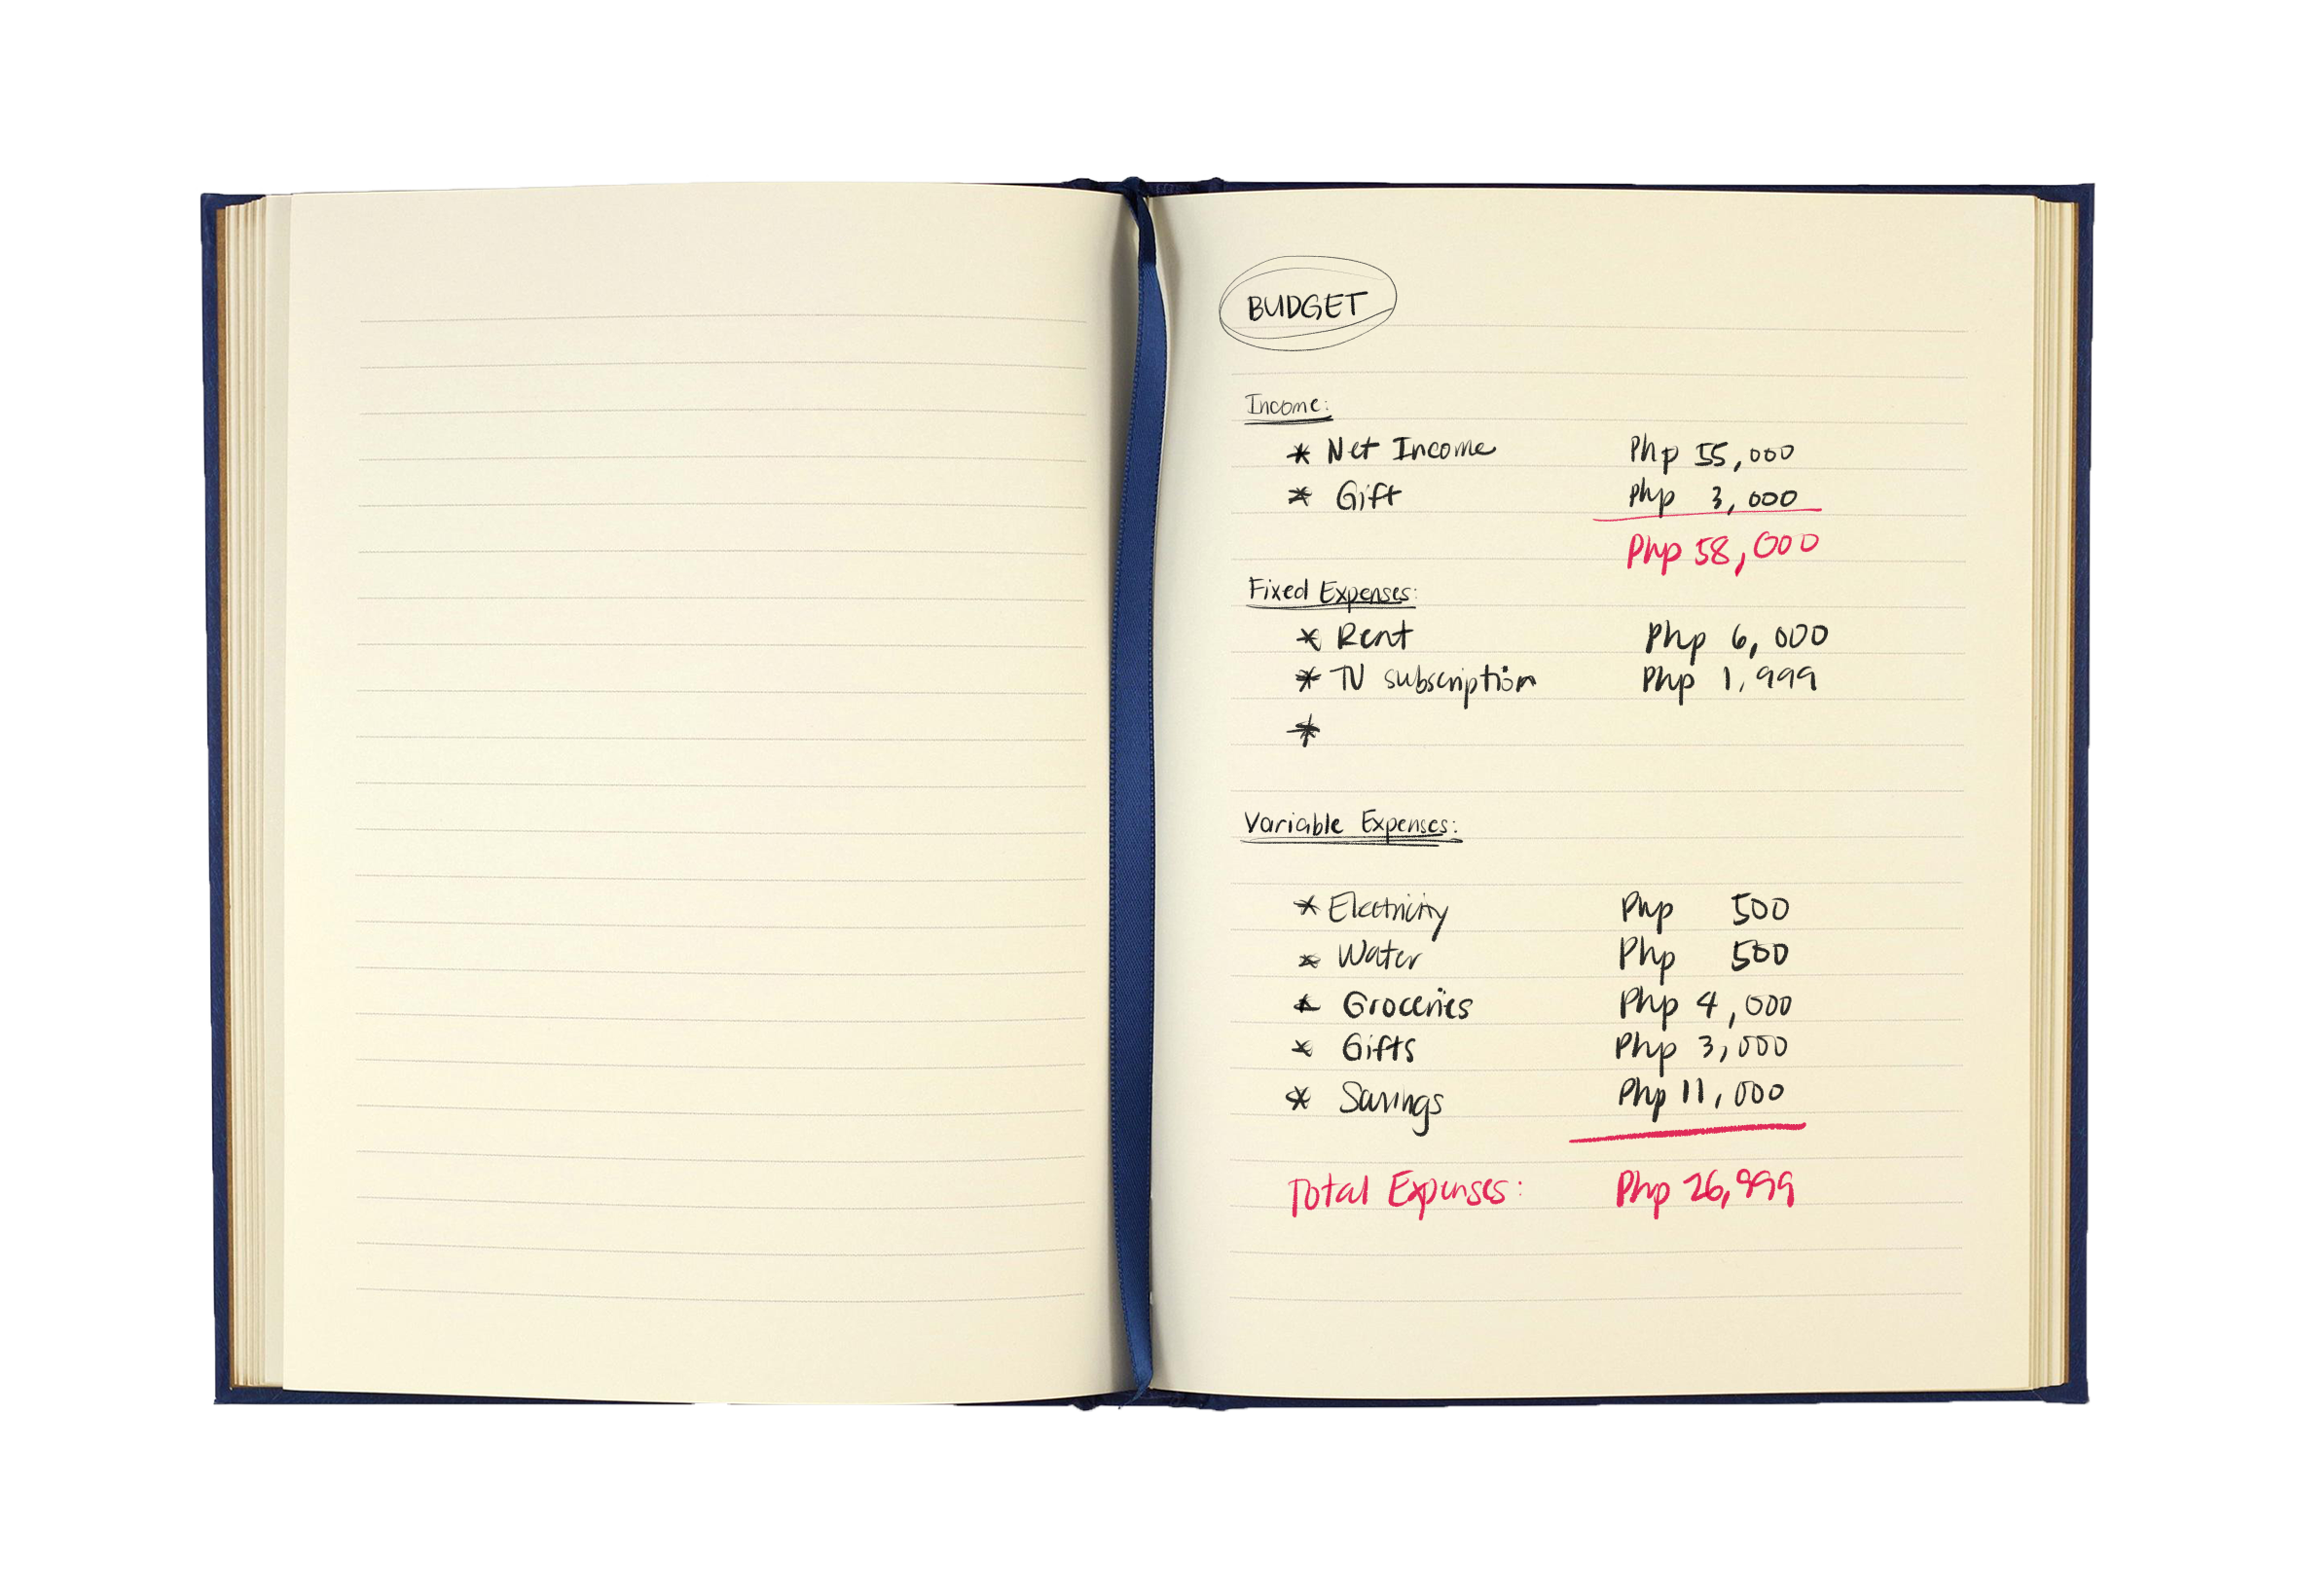 BUDGET
Income:
* Net Income Php 55,000
* Gift Php 3,000
Php 58,000
Fixed Expenses:
* Rent Php 6,000
* TV subscription Php 1,999
*
Variable Expenses:
* Electricity Php 500
* Water Php 500
* Groceries Php 4,000
* Gifts Php 3,000
* Savings Php 11,000
Total Expenses: Php 26,999